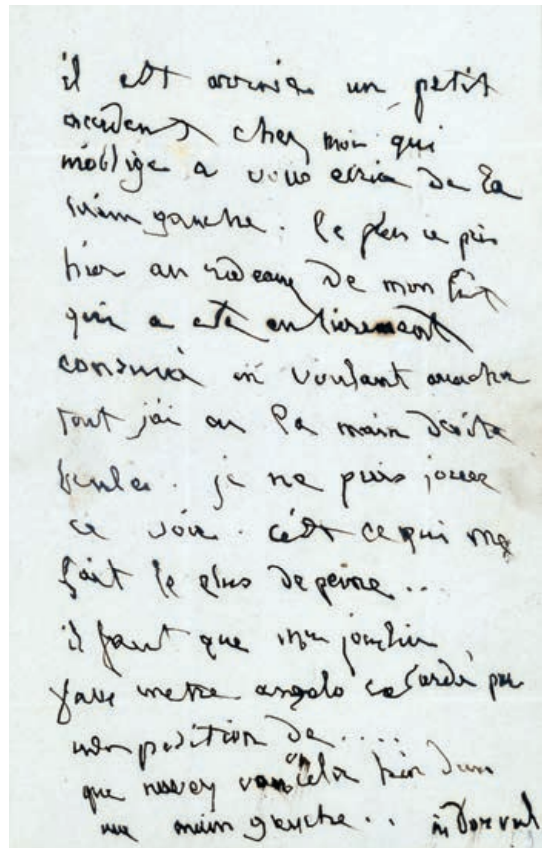 il est arrivée un petit
accident chez moi qui
m'oblige a vous ecrire de la
main gauche. le feu a pris
hier au rideaux de mon lit
qui a ete entierement
consumé en voulant arracher
tout j'ai eu la main droite
brulée. je ne puis jouer
ce soir. c'est ce qui me
fait le plus de peine..
il faut que mr jouslin
fasse mettre angelo retardé par
indisposition de....
que
une main gauche.. m Dorval